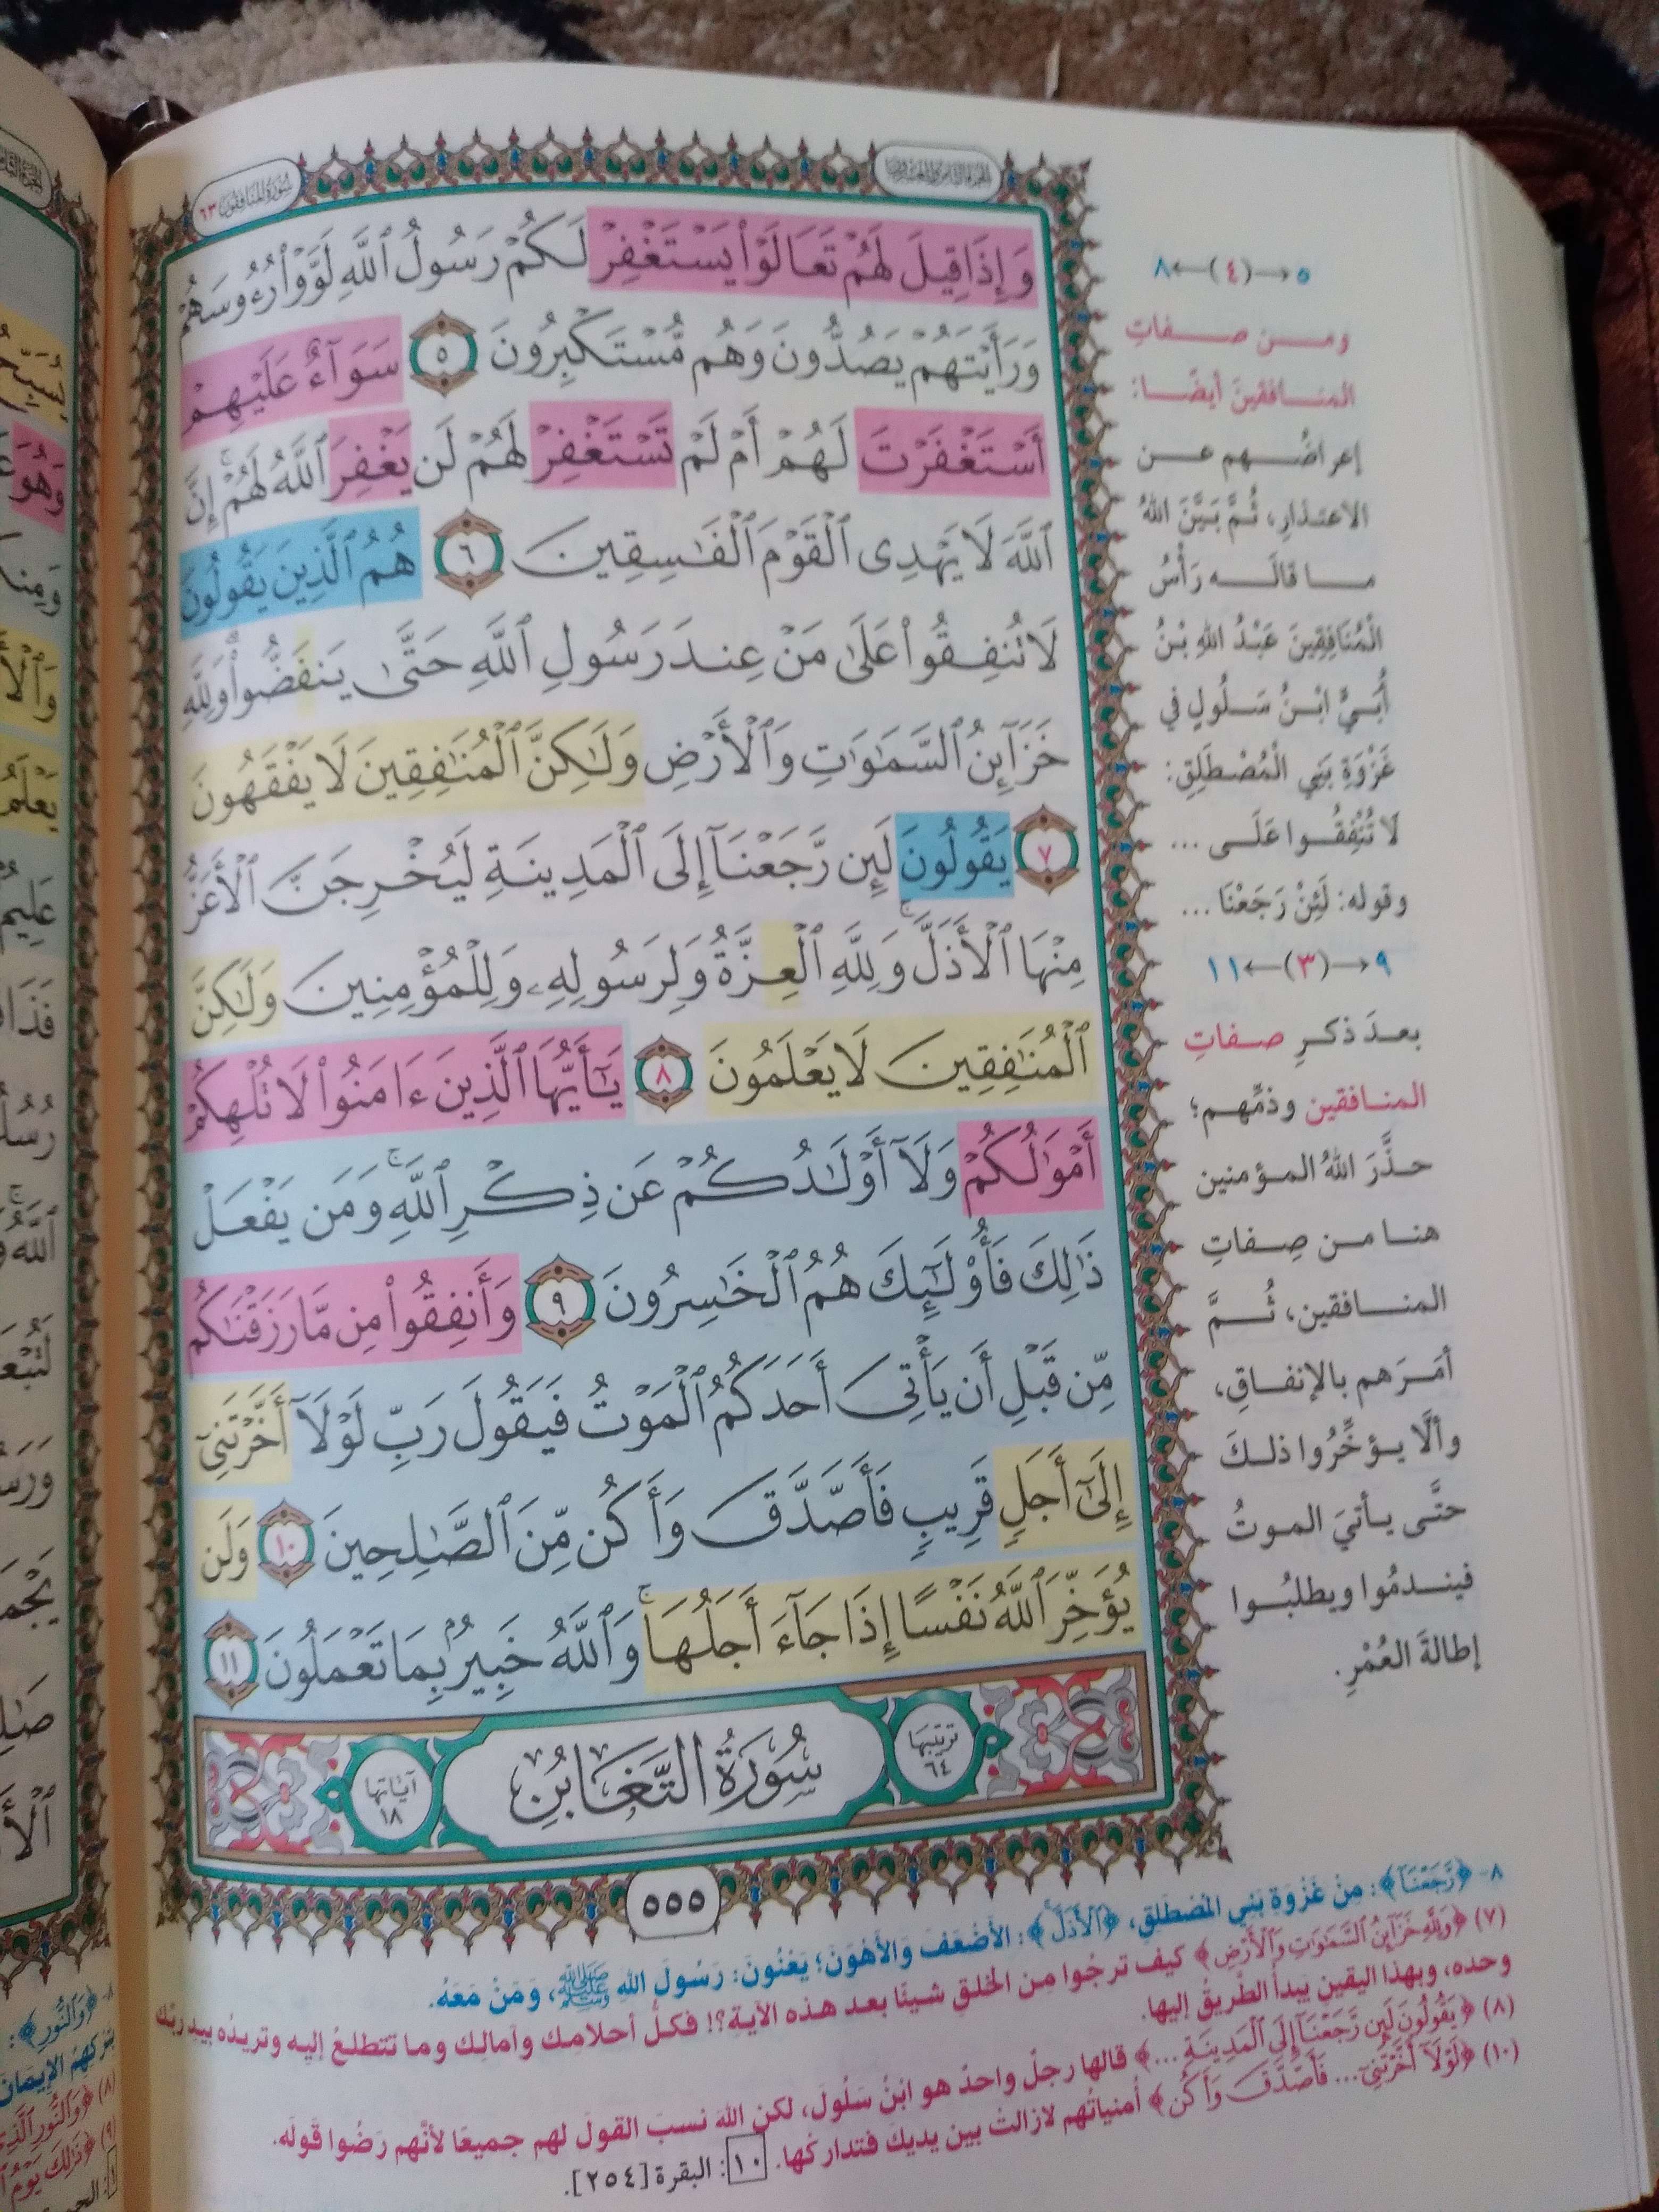 سُورَةُ المُنَافِقُونَ ٦٣
الجزء الثامن والعشرون
وَإِذَا قِيلَ لَهُمۡ تَعَالَوۡاْ يَسۡتَغۡفِرۡ لَكُمۡ رَسُولُ ٱللَّهِ لَوَّوۡاْ رُءُوسَهُمۡ
وَرَأَيۡتَهُمۡ يَصُدُّونَ وَهُم مُّسۡتَكۡبِرُونَ ٥ سَوَآءٌ عَلَيۡهِمۡ
أَسۡتَغۡفَرۡتَ لَهُمۡ أَمۡ لَمۡ تَسۡتَغۡفِرۡ لَهُمۡ لَن يَغۡفِرَ ٱللَّهُ لَهُمۡۚ إِنَّ
ٱللَّهَ لَا يَهۡدِى ٱلۡقَوۡمَ ٱلۡفَٰسِقِينَ ٦ هُمُ ٱلَّذِينَ يَقُولُونَ
لَا تُنفِقُواْ عَلَىٰ مَنۡ عِندَ رَسُولِ ٱللَّهِ حَتَّىٰ يَنفَضُّواْۗ وَلِلَّهِ
خَزَآئِنُ ٱلسَّمَٰوَٰتِ وَٱلۡأَرۡضِ وَلَٰكِنَّ ٱلۡمُنَٰفِقِينَ لَا يَفۡقَهُونَ
٧ يَقُولُونَ لَئِن رَّجَعۡنَآ إِلَى ٱلۡمَدِينَةِ لَيُخۡرِجَنَّ ٱلۡأَعَزُّ
مِنۡهَا ٱلۡأَذَلَّۚ وَلِلَّهِ ٱلۡعِزَّةُ وَلِرَسُولِهِۦ وَلِلۡمُؤۡمِنِينَ وَلَٰكِنَّ
ٱلۡمُنَٰفِقِينَ لَا يَعۡلَمُونَ ٨ يَٰٓأَيُّهَا ٱلَّذِينَ ءَامَنُواْ لَا تُلۡهِكُمۡ
أَمۡوَٰلُكُمۡ وَلَآ أَوۡلَٰدُكُمۡ عَن ذِكۡرِ ٱللَّهِۚ وَمَن يَفۡعَلۡ
ذَٰلِكَ فَأُوْلَٰٓئِكَ هُمُ ٱلۡخَٰسِرُونَ ٩ وَأَنفِقُواْ مِن مَّا رَزَقۡنَٰكُم
مِّن قَبۡلِ أَن يَأۡتِىَ أَحَدَكُمُ ٱلۡمَوۡتُ فَيَقُولَ رَبِّ لَوۡلَآ أَخَّرۡتَنِىٓ
إِلَىٰٓ أَجَلٍ قَرِيبٍ فَأَصَّدَّقَ وَأَكُن مِّنَ ٱلصَّٰلِحِينَ ١٠ وَلَن
يُؤَخِّرَ ٱللَّهُ نَفۡسًا إِذَا جَآءَ أَجَلُهَاۚ وَٱللَّهُ خَبِيرُۢ بِمَا تَعۡمَلُونَ ١١
ترتيبها ٦٤
سُورَةُ التَّغَابُنِ
آياتها ١٨
٥٥٥
٥→(٤)←٨
ومن صفاتِ
المنافقينَ أيضًا:
إعراضُهم عن
الاعتذارِ، ثُمَّ بَيَّنَ اللهُ
ما قالَه رَأْسُ
الْمُنَافِقِينَ عَبْدُ اللهِ بْنُ
أُبَيٍّ ابْنُ سَلُولٍ في
غَزْوَةِ بَنِي الْمُصْطَلِقِ:
لَا تُنْفِقُوا عَلَى ...
وقوله: لَئِنْ رَجَعْنَا ...
٩→(٣)←١١
بعدَ ذكرِ صفاتِ
المنافقين وذمِّهم؛
حذَّرَ اللهُ المؤمنين
هنا من صِفاتِ
المنافقين، ثُمَّ
أمَرَهم بالإنفاقِ،
وألَّا يؤخِّرُوا ذلكَ
حتَّى يأتيَ الموتُ
فيندمُوا ويطلبُوا
إطالةَ العُمْرِ.
٨- ﴿رَّجَعۡنَآ﴾: مِنْ غَزْوَةِ بَنِي الْمُصْطَلِقِ، ﴿ٱلۡأَذَلَّ﴾: الأَضْعَفَ وَالأَهْوَنَ؛ يَعْنُونَ: رَسُولَ اللهِ ﷺ، وَمَنْ مَعَهُ.
(٧) ﴿وَلِلَّهِ خَزَآئِنُ ٱلسَّمَٰوَٰتِ وَٱلۡأَرۡضِ﴾ كيف ترجُوا من الخلقِ شيئًا بعد هذه الآية؟! فكلُّ أحلامِك وآمالِك وما تتطلعُ إليه وتريدُه بيد ربِّك
وحده، وبهذا اليقينِ يبدأُ الطَّريقُ إليها.
(٨) ﴿يَقُولُونَ لَئِن رَّجَعۡنَآ إِلَى ٱلۡمَدِينَةِ ...﴾ قالها رجلٌ واحدٌ هو ابْنُ سَلُولَ، لكن اللهَ نسبَ القولَ لهم جميعًا لأنَّهم رضُوا قولَه.
(١٠) ﴿لَوۡلَآ أَخَّرۡتَنِىٓ... فَأَصَّدَّقَ وَأَكُن﴾ أُمنياتُهم لازالتْ بين يديك فتداركْها. ١٠: البقرة [٢٥٤].